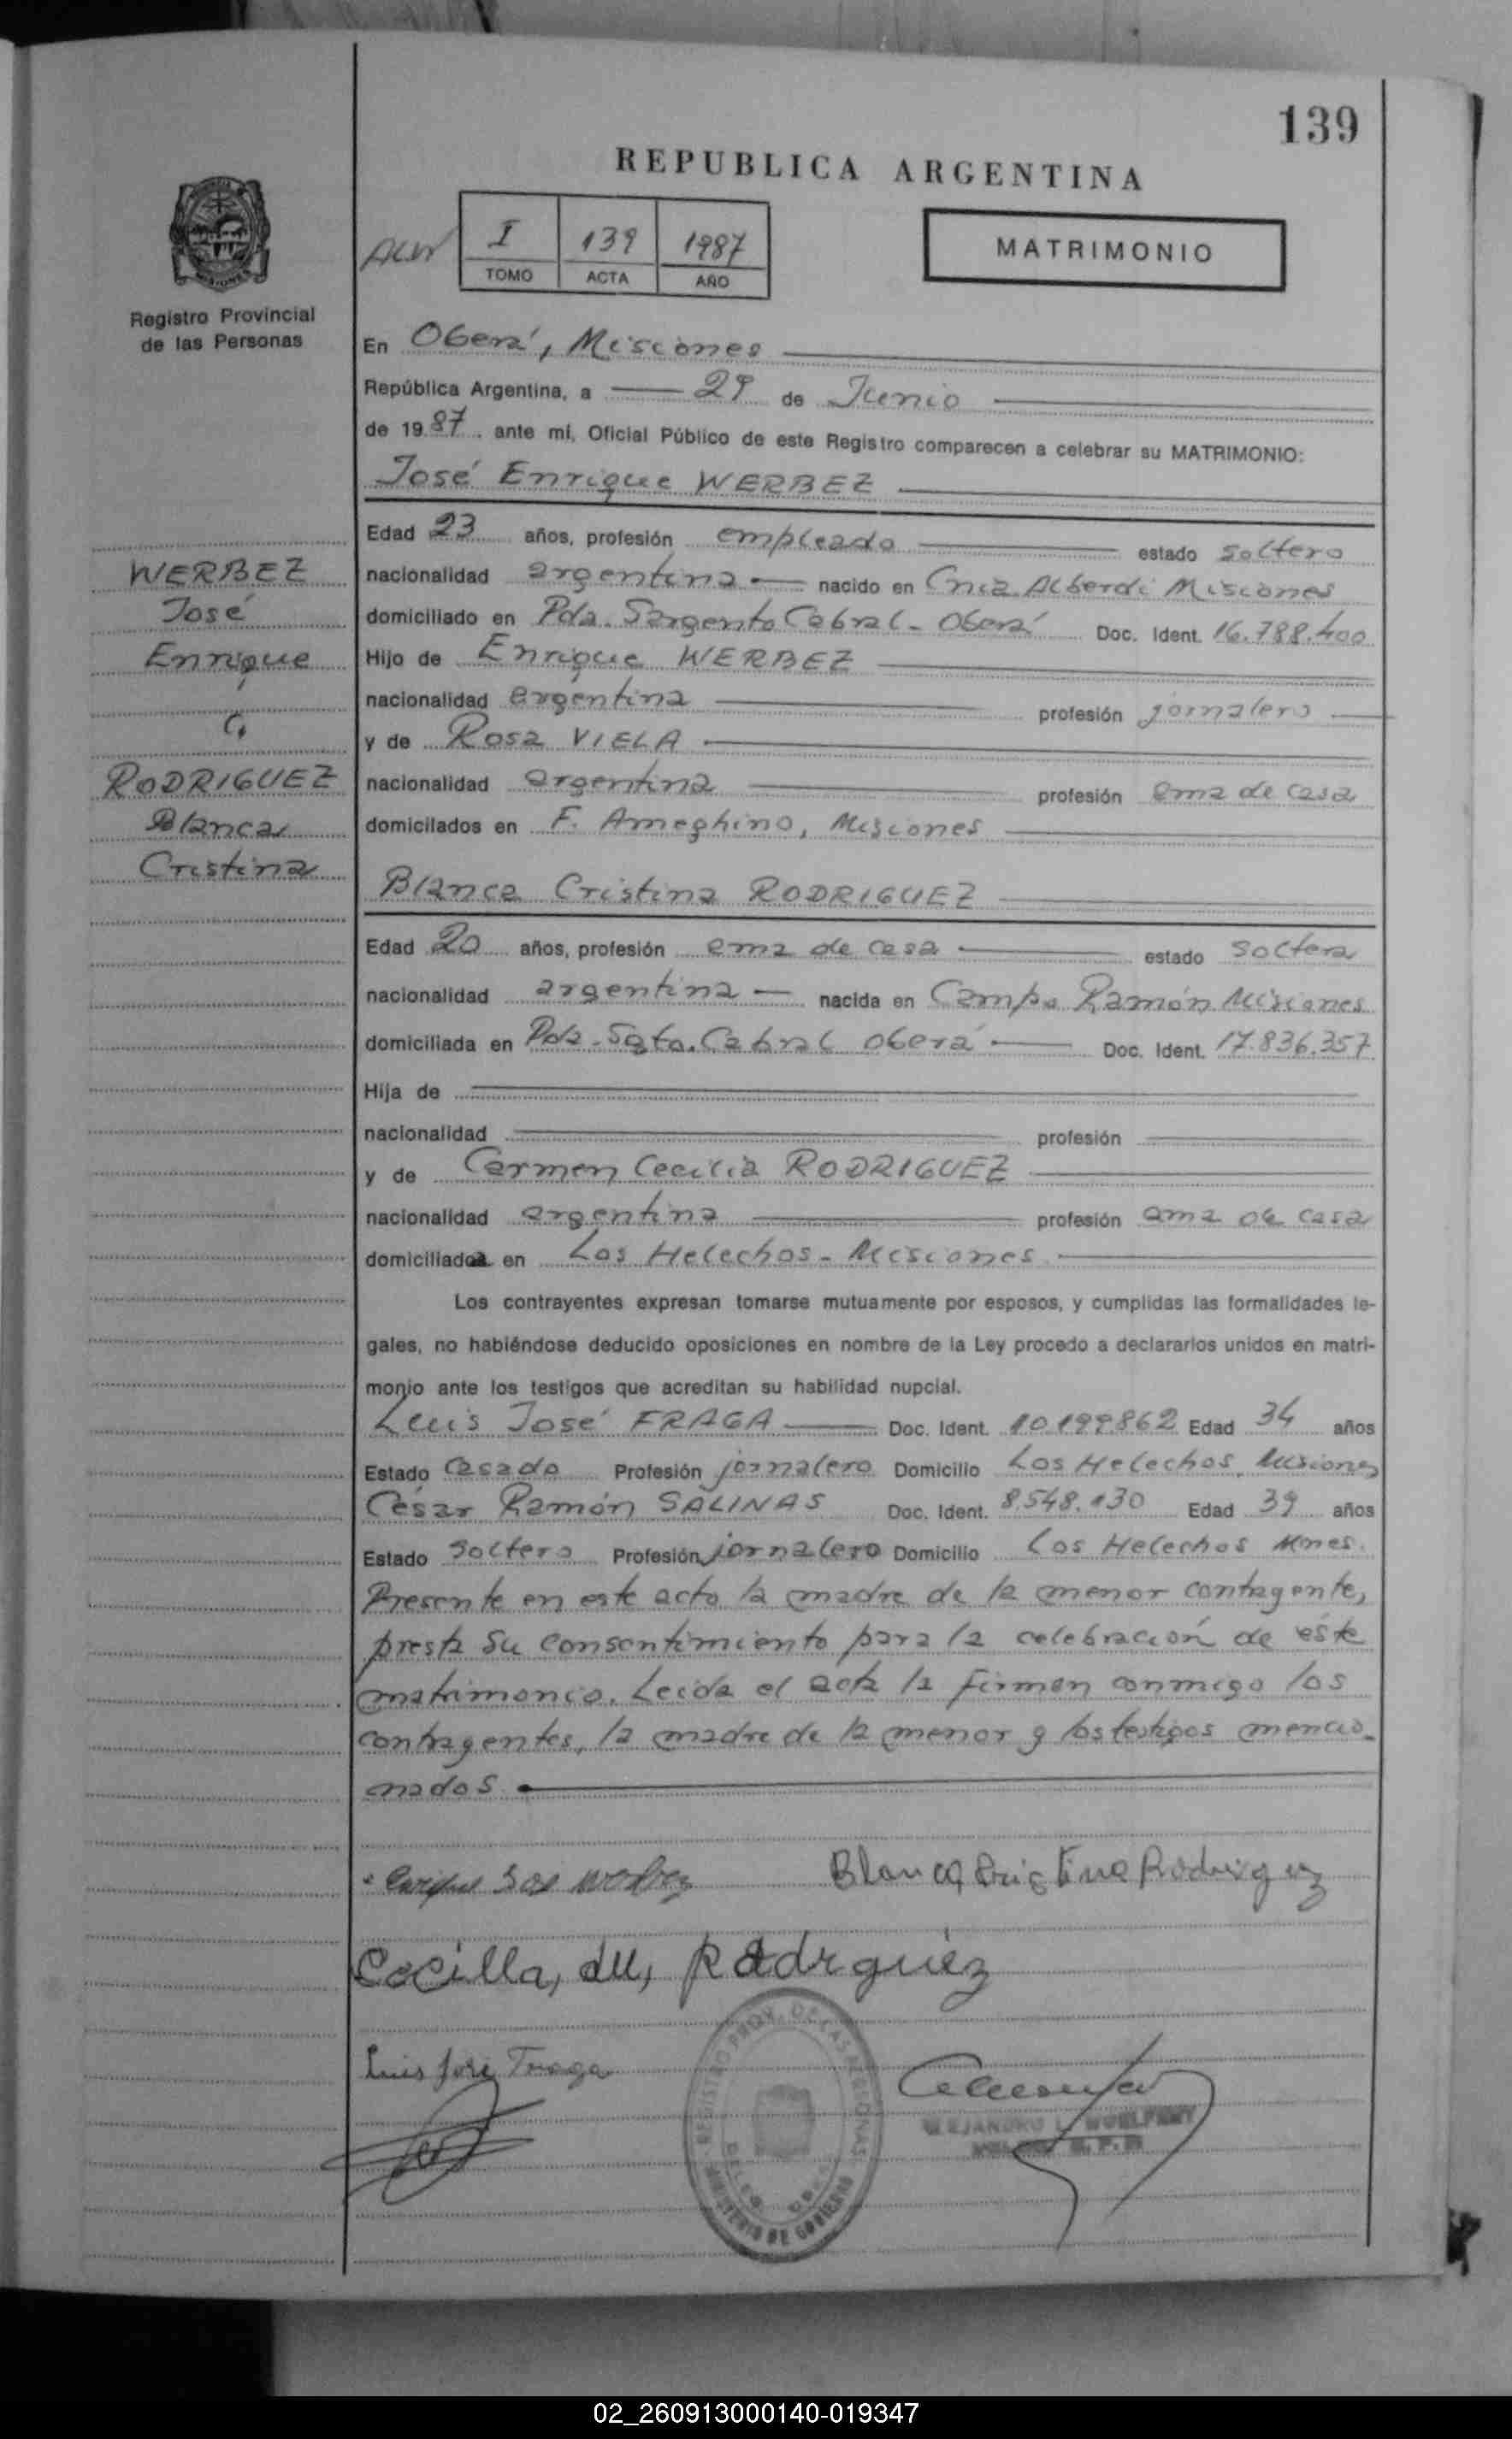 139
REPUBLICA ARGENTINA
I 139 1987
TOMO ACTA AÑO
MATRIMONIO
Registro Provincial
de las Personas
En Oberá, Misiones
República Argentina, a 29 de Junio
de 1987, ante mí, Oficial Público de este Registro comparecen a celebrar su MATRIMONIO:
José Enrique WERBEZ
Edad 23 años, profesión empleado estado soltero
nacionalidad argentina nacido en Cnia. Alberdi Misiones
domiciliado en Pda. Sargento Cabral - Oberá Doc. Ident. 16.788.400
Hijo de Enrique WERBEZ
nacionalidad argentina profesión jornalero
y de Rosa VIELA
nacionalidad argentina profesión ama de casa
domicilados en F. Ameghino, Misiones
WERBEZ
José
Enrique
c,
RODRIGUEZ
Blanca
Cristina
Blanca Cristina RODRIGUEZ
Edad 20 años, profesión ama de casa estado soltera
nacionalidad argentina nacida en Campo Ramón Misiones
domiciliada en Pda. Sgto. Cabral Oberá Doc. Ident. 17.836.357
Hija de
nacionalidad profesión
y de Carmen Cecilia RODRIGUEZ
nacionalidad argentina profesión ama de casa
domiciliada en Los Helechos - Misiones
Los contrayentes expresan tomarse mutuamente por esposos, y cumplidas las formalidades le-
gales, no habiéndose deducido oposiciones en nombre de la Ley procedo a declararlos unidos en matri-
monio ante los testigos que acreditan su habilidad nupcial.
Luis José FRAGA Doc. Ident. 10199862 Edad 34 años
Estado casado Profesión jornalero Domicilio Los Helechos, Misiones
César Ramón SALINAS Doc. Ident. 8.548.130 Edad 39 años
Estado soltero Profesión jornalero Domicilio Los Helechos Mnes.
Presente en este acto la madre de la menor contragente,
presta su consentimiento para la celebración de éste
matrimonio. Leida el acta la firman conmigo los
contragentes, la madre de la menor y los testigos mencio-
nados.
Blanca Cristina Rodriguez
Cecilla, du, Rodrguez
Luis José Fraga
REGISTRO PROV. DE LAS PERSONAS
MINISTERIO DE GOBIERNO
02_260913000140-019347